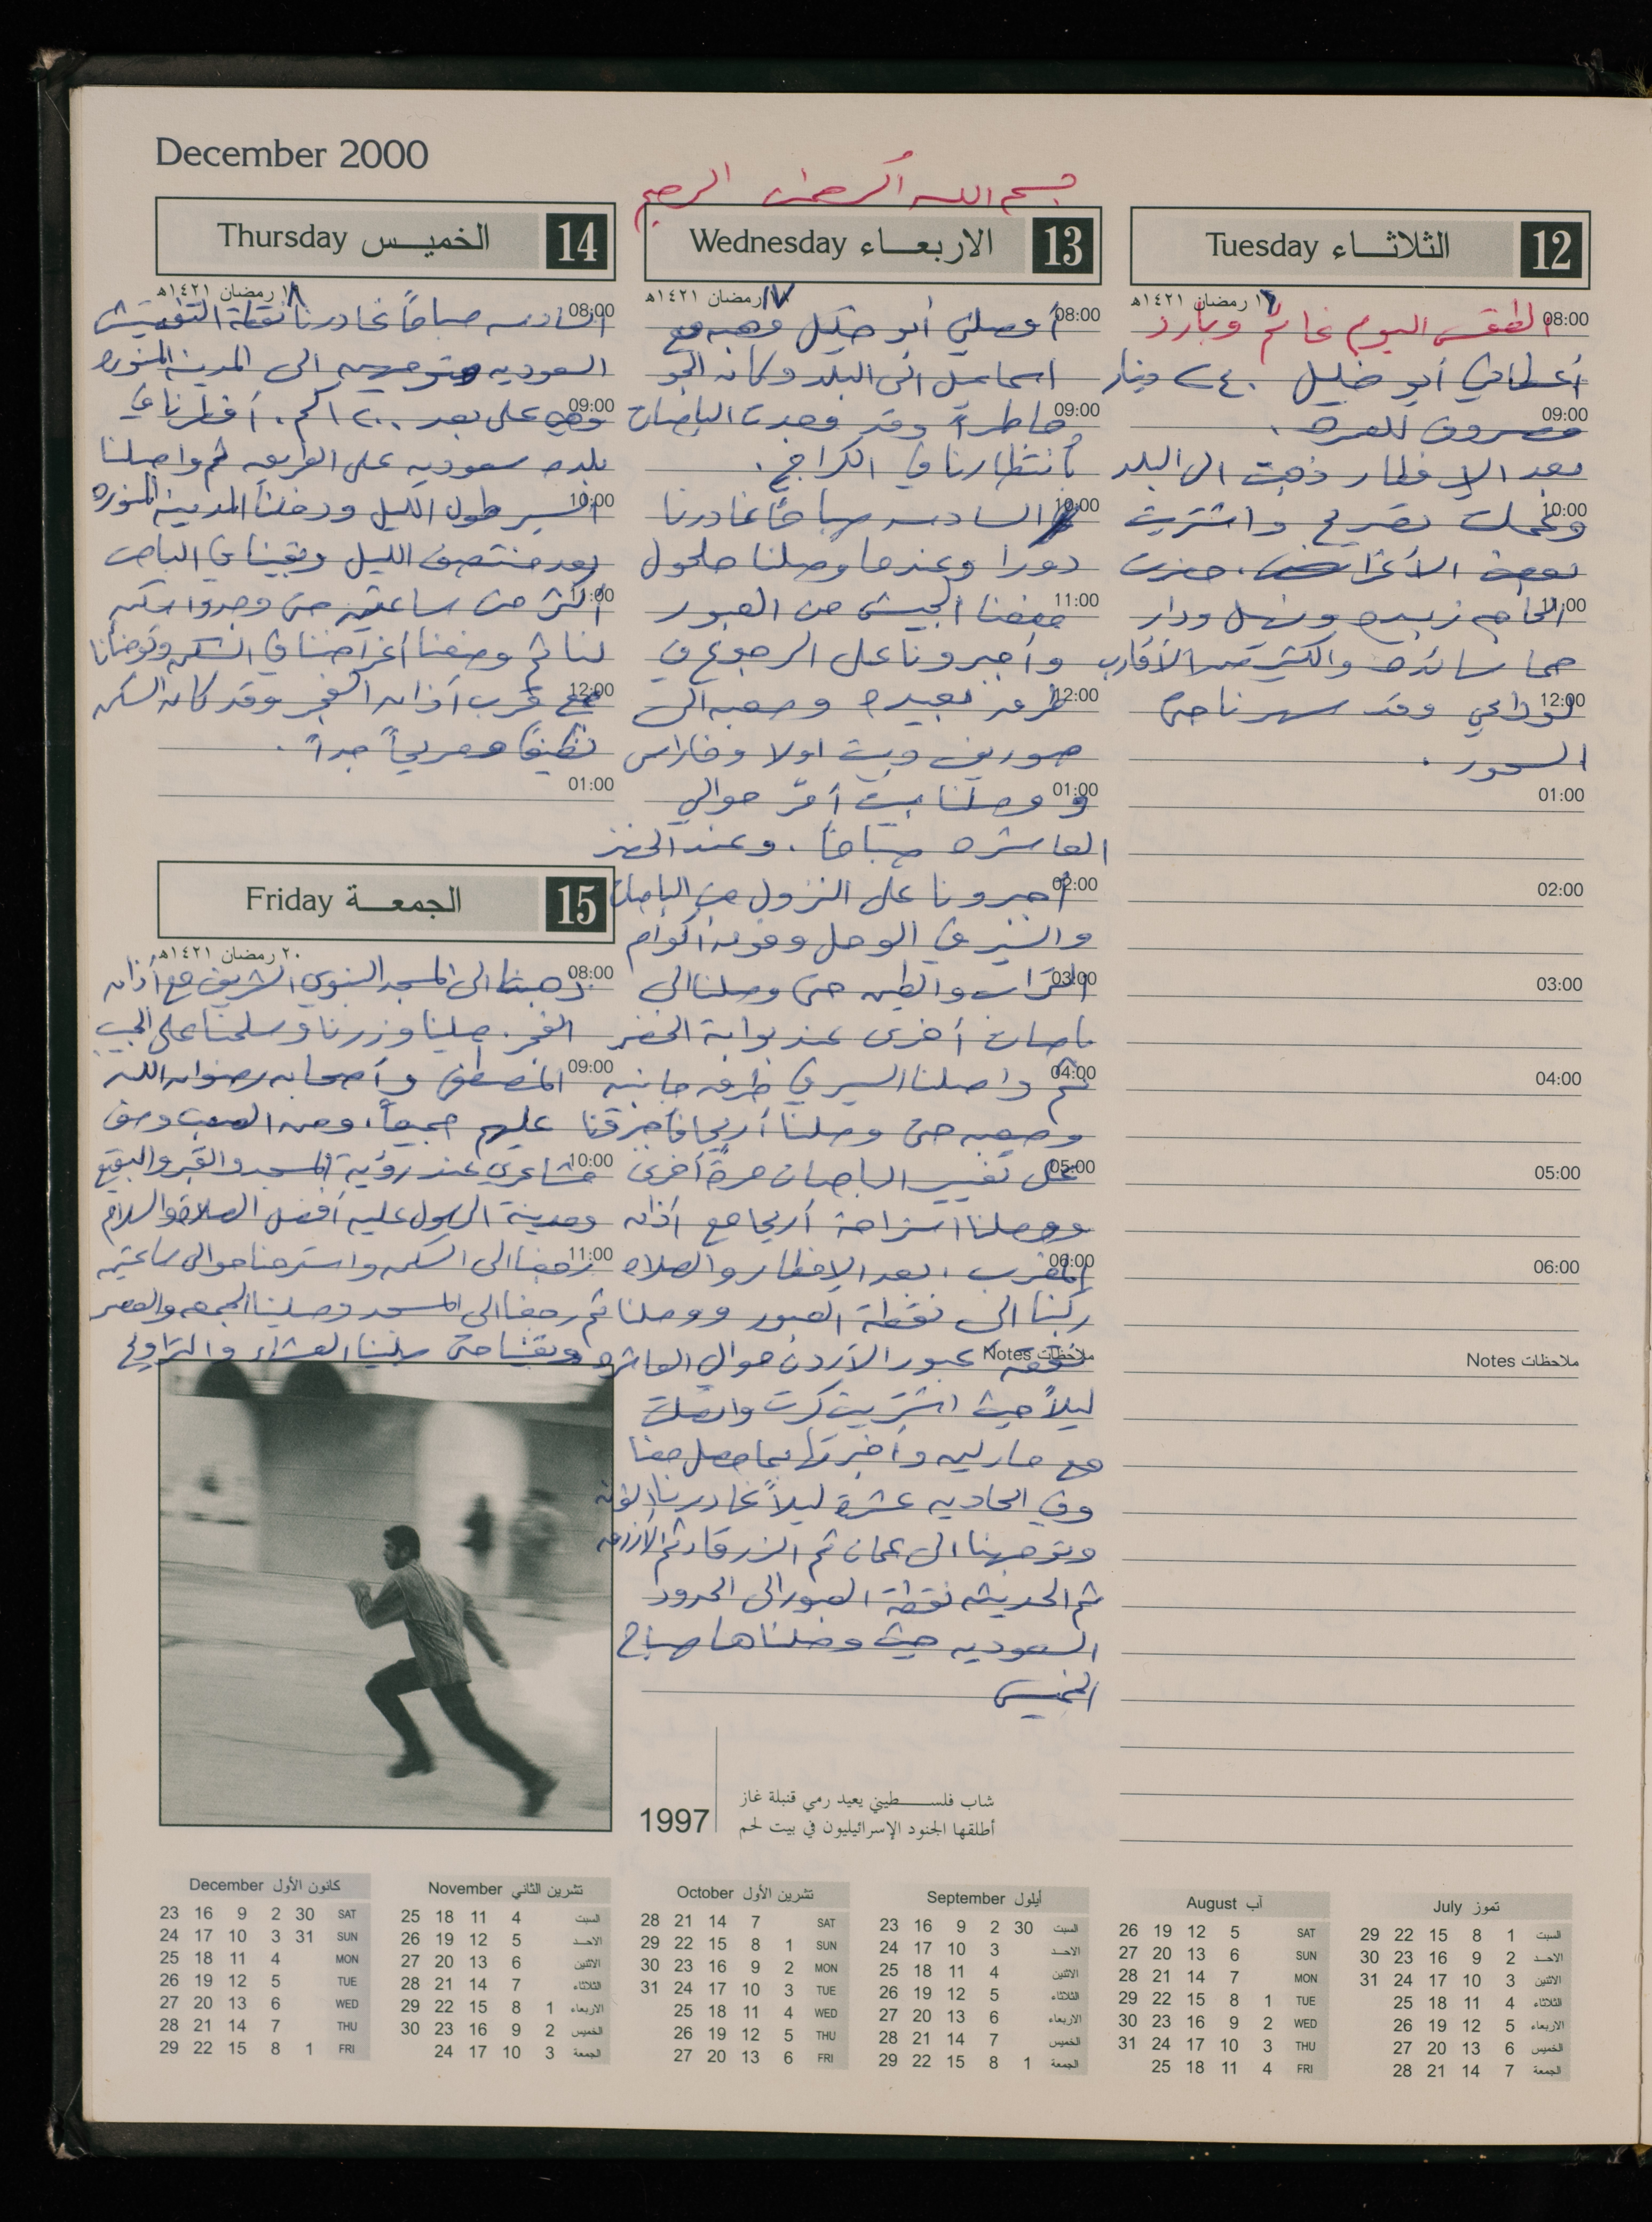 December 2000
بسم الله الرحمن الرحيم
12 الثلاثـاء Tuesday
١٦ رمضان ١٤٢١هـ
08:00
الطقس اليوم غائم وبارد
أعطاني أبو خليل ٢٤٠ دينار
09:00
مصروف للعمره .
بعد الإفطار ذهبت الى البلد
10:00
وعملت تصريح واشتريت
بعض الأغراض. حضرت
11:00
الحاجه زبيده ونهل ودار
حما سائده والكثير من الأقارب
12:00
لوداعي وقد سهرنا حتى
السحور .
01:00
02:00
03:00
04:00
05:00
06:00
ملاحظات Notes
13 الاربعـاء Wednesday
١٧ رمضان ١٤٢١هـ
08:00
أوصلني أبو خليل وهبه مع
اسماعيل الى البلد وكان الجو
09:00
ماطراً وقد وجدت الباصات
بأنتظارنا في الكراج .
10:00
السادسه صباحاً غادرنا
دورا وعندما وصلنا حلحول
11:00
منعنا الجيش من العبور
وأجبرونا على الرجوع في
12:00
طرق بعيده وصعبه الى
صوريف وبيت اولا وخاراس
01:00
و وصلنا بيت أمّر حوالي
العاشره صباحاً . وعند الخضر
02:00
أجبرونا على النزول من الباصات
والسير في الوحل وفوق أكوام
03:00
التراب والطين حتى وصلنا الى
باصات أخرى عند بوابة الخضر
04:00
ثم واصلنا السير في طرق جانبيه
وصعبه حتى وصلنا أريحا فأجبرنا
05:00
على تغيير الباصات مرةً أخرى
ووصلنا استراحة أريحا مع أذان
06:00
المغرب . بعد الإفطار والصلاه
ركبنا الى نقطة العبور ووصلنا
ملاحظات Notes
نقطة عبور الأردن حوالي العاشره
ليلاً حيث اشتريت كرت واتصلت
مع مارلين وأخبرتها بما حصل معنا
وفي الحاديه عشرة ليلاً غادرنا
وتوجهنا الى عمان ثم الزرقاء ثم الأزرق
ثم الحديثه نقطة العبور الى الحدود
السعوديه حيث وصلناها صباح
الخميس
14 الخميـس Thursday
١٨ رمضان ١٤٢١هـ
08:00
السادسه صباحاً غادرنا نقطة التفتيش
السعوديه متوجهين الى المدينه المنوره
09:00
وهي على بعد ١٢٠٠ كم . أفطرنا في
بلده سعوديه على الطريق ثم واصلنا
10:00
السير طول الليل ودخلنا المدينه المنوره
بعد منتصف الليل وبقينا في الباص
11:00
أكثر من ساعتين حتى وجدوا سكن
لنا ثم وضعنا أغراضنا في السكن وتوضأنا
12:00
مع قرب أذان الفجر وقد كان السكن
نظيفاً ومريحاً جداً .
01:00
15 الجمعـة Friday
٢٠ رمضان ١٤٢١هـ
08:00
ذهبنا الى المسجد النبوي الشريف مع أذان
الفجر . صلينا وزرنا وسلمنا على الحبيب
09:00
المصطفى وأصحابه رضوان الله
عليهم جميعاً، ومن الصعب وصف
10:00
مشاعري عند رؤية المسجد والقبر والبقيع
ومدينة الرسول عليه أفضل الصلاة والسلام
11:00
رجعنا الى السكن واسترحنا حوالي ساعتين
ثم رجعنا الى المسجد وصلينا الجمعه والعصر
وبقينا حتى صلينا العشاء والتراويح
1997
شاب فلسـطيني يعيد رمي قنبلة غاز
أطلقها الجنود الإسرائيليون في بيت لحم
تموز July
السبت 1 8 15 22 29
الاحـد 2 9 16 23 30
الاثنين 3 10 17 24 31
الثلاثاء 4 11 18 25
الاربعاء 5 12 19 26
الخميس 6 13 20 27
الجمعة 7 14 21 28
آب August
SAT 5 12 19 26
SUN 6 13 20 27
MON 7 14 21 28
TUE 1 8 15 22 29
WED 2 9 16 23 30
THU 3 10 17 24 31
FRI 4 11 18 25
أيلول September
السبت 30 2 9 16 23
الاحـد 3 10 17 24
الاثنين 4 11 18 25
الثلاثاء 5 12 19 26
الاربعاء 6 13 20 27
الخميس 7 14 21 28
الجمعة 1 8 15 22 29
تشرين الأول October
SAT 7 14 21 28
SUN 1 8 15 22 29
MON 2 9 16 23 30
TUE 3 10 17 24 31
WED 4 11 18 25
THU 5 12 19 26
FRI 6 13 20 27
تشرين الثاني November
السبت 4 11 18 25
الاحـد 5 12 19 26
الاثنين 6 13 20 27
الثلاثاء 7 14 21 28
الاربعاء 1 8 15 22 29
الخميس 2 9 16 23 30
الجمعة 3 10 17 24
كانون الأول December
SAT 30 2 9 16 23
SUN 31 3 10 17 24
MON 4 11 18 25
TUE 5 12 19 26
WED 6 13 20 27
THU 7 14 21 28
FRI 1 8 15 22 29